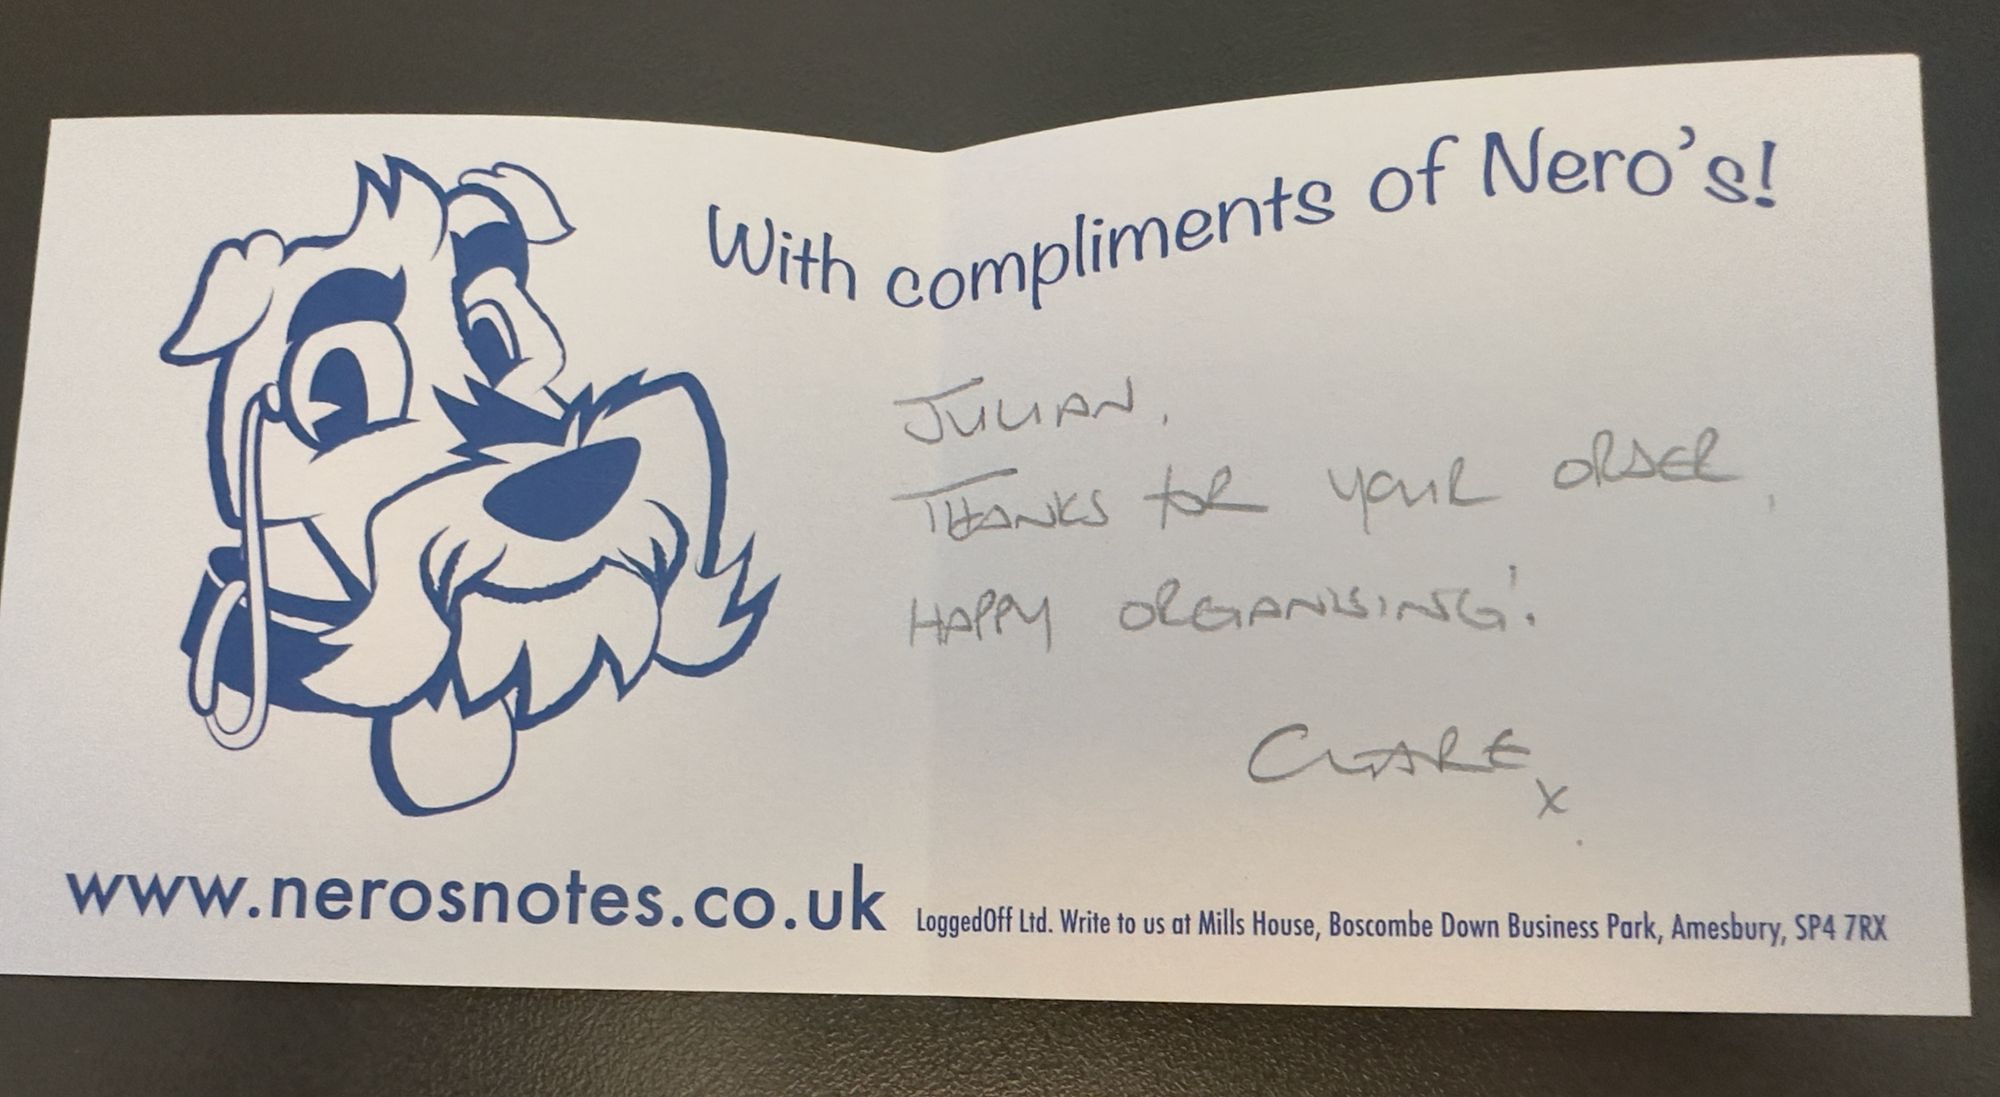 With compliments of Nero's!
JULIAN,
THANKS for YOUR ORDER,
HAPPY ORGANISING!
CLARE x
www.nerosnotes.co.uk
LoggedOff Ltd. Write to us at Mills House, Boscombe Down Business Park, Amesbury, SP4 7RX